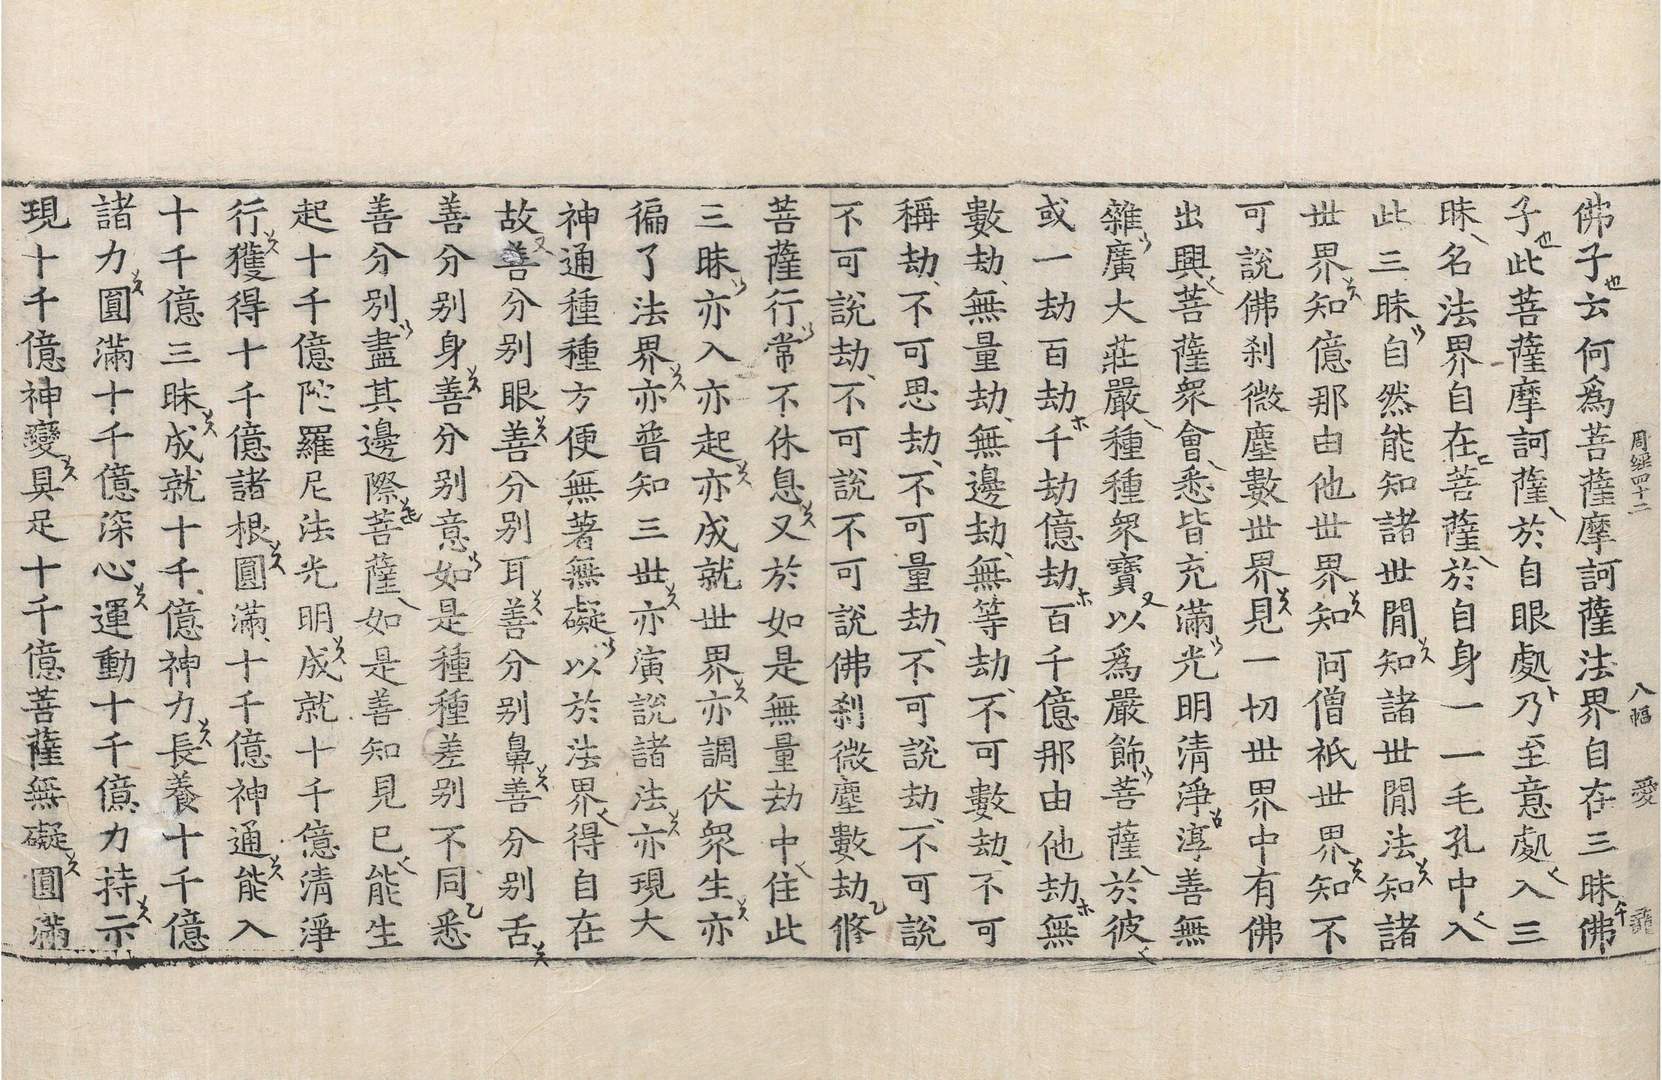 周經四十二 八幅 愛
佛子云何爲菩薩摩訶薩法界自在三昧佛
子此菩薩摩訶薩於自眼處乃至意處入三
昧名法界自在菩薩於自身一一毛孔中入
此三昧自然能知諸世間知諸世間法知諸
世界知億那由他世界知阿僧祇世界知不
可說佛刹微塵數世界見一切世界中有佛
出興菩薩衆會悉皆充滿光明清淨淳善無
雜廣大莊嚴種種衆寶以爲嚴飾菩薩於彼
或一劫百劫千劫億劫百千億那由他劫無
數劫無量劫無邊劫無等劫不可數劫不可
稱劫不可思劫不可量劫不可說劫不可說
不可說劫不可說不可說佛刹微塵數劫修
菩薩行常不休息又於如是無量劫中住此
三昧亦入亦起亦成就世界亦調伏衆生亦
徧了法界亦普知三世亦演說諸法亦現大
神通種種方便無著無礙以於法界得自在
故善分別眼善分別耳善分別鼻善分別舌
善分別身善分別意如是種種差別不同悉
善分別盡其邊際菩薩如是善知見已能生
起十千億陀羅尼法光明成就十千億清淨
行獲得十千億諸根圓滿十千億神通能入
十千億三昧成就十千億神力長養十千億
諸力圓滿十千億深心運動十千億力持示
現十千億神變具足十千億菩薩無礙圓滿